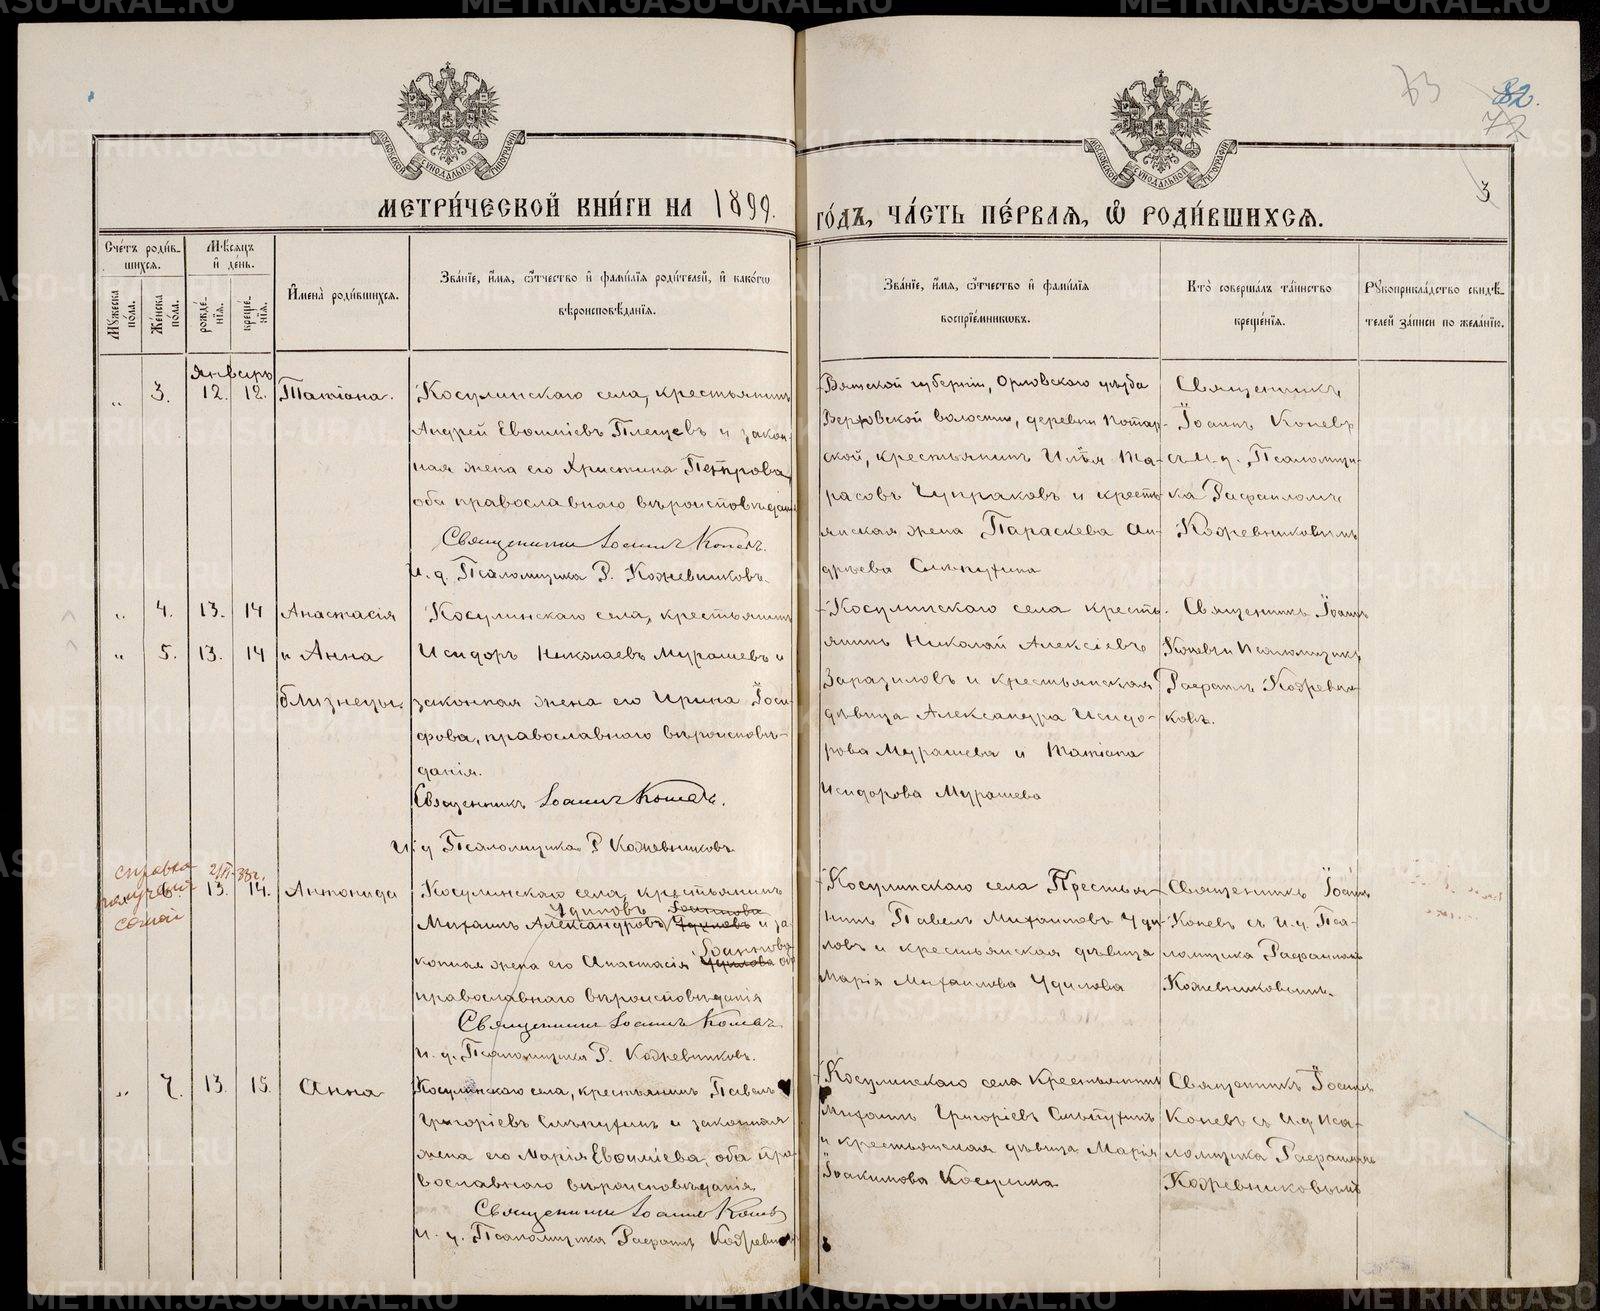 МЕТРИ́ЧЕСКОЙ КНИ́ГИ НА 1899.
ГО́ДЪ, ЧА́СТЬ ПЕ́РВАЯ, Ѿ РОДИ́ВШИХСЯ.
3
Сче́тъ роди́в-
шихся.
Мѣ́сяцъ
и҆ де́нь.
Му́жеска по́ла.
Же́нска по́ла.
рожде́-
нїя.
креще́-
нїя.
И҆мена̀ роди́вшихся.
Зва́нїе, и҆́мя, ѻ҆́тчество и҆ фами́лїя роди́телей, и҆ како́гѡ
вѣроисповѣ́данїя.
Зва́нїе, и҆́мя, ѻ҆́тчество и҆ фами́лїя
воспрїе́мникѡвъ.
Кто̀ соверша́лъ та́инство
креще́нїя.
Рꙋкоприкла́дство свидѣ́-
телей за́писи по жела́нїю.
Январь
„ 3. 12. 12. Татіана.
Косулинскаго села, крестьянинъ
Андрей Евѳиміевъ Плещевъ и закон-
ная жена его Христина Петрова,
оба православнаго вѣроисповѣданія
Священникъ Іоаннъ Коневъ.
И. д. Псаломщика Р. Кожевниковъ.
Вятской губерніи, Орловскаго уѣзда
волости, деревни
ской, крестьянинъ Илья Та-
расовъ Чупраковъ и кресть-
янская жена Параскева Ан-
дреева Слѣпухина
Священникъ
Іоаннъ Коневъ
съ И. д. Псаломщи-
ка Рафаиломъ
Кожевниковымъ
„ 4. 13. 14 Анастасія
„ 5. 13. 14 и Анна
близнецы.
Косулинскаго села, крестьянинъ
Исидоръ Николаевъ Мурашевъ и
законная жена его Ирина Іоси-
фова, православнаго вѣроисповѣ-
данія.
Священникъ Іоаннъ Коневъ.
И. д. Псаломщика Р. Кожевниковъ
Косулинскаго села кресть-
янинъ Николай Алексіевъ
Заразиловъ и крестьянская
дѣвица Александра Исидо-
рова Мурашева и Татіана
Исидорова Мурашева
Священникъ Іоаннъ
Коневъ и Псаломщикъ
Рафаилъ Кожевни-
ковъ.
справка
получена
6. 13. 14. Антонида
Косулинскаго села, крестьянинъ
Удиловъ
Михаилъ Александровъ Удиловъ и за-
Іоаннова
конная жена его Анастасія Удилова оба
православнаго вѣроисповѣданія
Священникъ Іоаннъ Коневъ
И. д. Псаломщика Р. Кожевниковъ.
Косулинскаго села Крестья-
нинъ Павелъ Михаиловъ Уди-
ловъ и крестьянская дѣвица
Марія Михаилова Удилова
Священникъ Іоаннъ
Коневъ съ И. д. Пса-
ломщика Рафаиломъ
Кожевниковымъ.
„ 7. 13. 15. Анна
Косулинскаго села, крестьянинъ Павелъ
Григоріевъ Слѣпухинъ и законная
жена его Марія Евѳиміева, оба пра-
вославнаго вѣроисповѣданія
Священникъ Іоаннъ Коневъ
И. д. Псаломщика Рафаилъ Кожевниковъ
Косулинскаго села Крестьянинъ
Михаилъ Григоріевъ Слѣпухинъ
и крестьянская дѣвица Марія
Іоакимова Косулина
Священникъ Іоаннъ
Коневъ съ И. д. Пса-
ломщика Рафаиломъ
Кожевниковымъ
METRIKI.GASO-URAL.RU